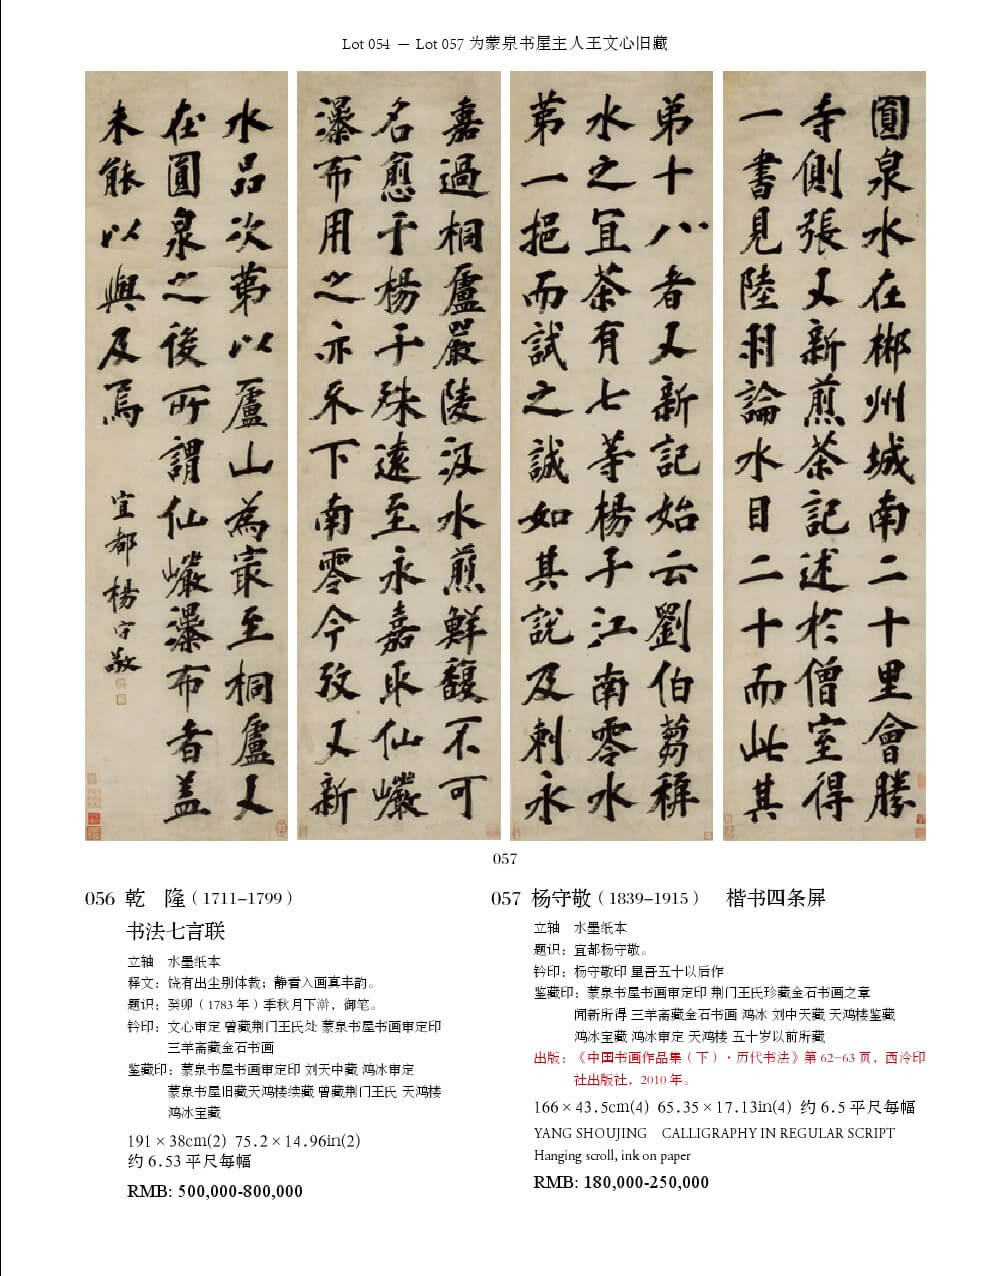 Lot 054 — Lot 057 为蒙泉书屋主人王文心旧藏
圓泉水在郴州城南二十里會勝
寺側張又新煎茶記述於僧室得
一書見陸羽論水目二十而此其
弟十八者又新記始云劉伯芻稱
水之宜茶有七等楊子江南零水
苐一挹而試之誠如其說及刺永
嘉過桐廬嚴陵汲水煎鮮馥不可
名愈于楊子殊遠至永嘉取仙巖
瀑布用之亦不下南零今攷又新
水品次苐以廬山為冣至桐廬又
在圓泉之後所謂仙巖瀑布者盖
未能以與及焉
宜都楊守敬
057
056 乾 隆（1711-1799）
书法七言联
立轴 水墨纸本
释文：饶有出尘别体裁；静看入画真丰韵。
题识：癸卯（1783 年）季秋月下澣，御笔。
钤印：文心审定 曾藏荆门王氏处 蒙泉书屋书画审定印
三羊斋藏金石书画
鉴藏印：蒙泉书屋书画审定印 刘天中藏 鸿冰审定
蒙泉书屋旧藏天鸿楼续藏 曾藏荆门王氏 天鸿楼
鸿冰宝藏
191 × 38cm(2) 75.2 × 14.96in(2)
约 6.53 平尺每幅
RMB: 500,000-800,000
057 杨守敬（1839-1915） 楷书四条屏
立轴 水墨纸本
题识：宜都杨守敬。
钤印：杨守敬印 星吾五十以后作
鉴藏印：蒙泉书屋书画审定印 荆门王氏珍藏金石书画之章
闻新所得 三羊斋藏金石书画 鸿冰 刘中天藏 天鸿楼鉴藏
鸿冰宝藏 鸿冰审定 天鸿楼 五十岁以前所藏
出版：《中国书画作品集（下）· 历代书法》第 62-63 页，西泠印
社出版社，2010 年。
166 × 43.5cm(4) 65.35 × 17.13in(4) 约 6.5 平尺每幅
YANG SHOUJING CALLIGRAPHY IN REGULAR SCRIPT
Hanging scroll, ink on paper
RMB: 180,000-250,000